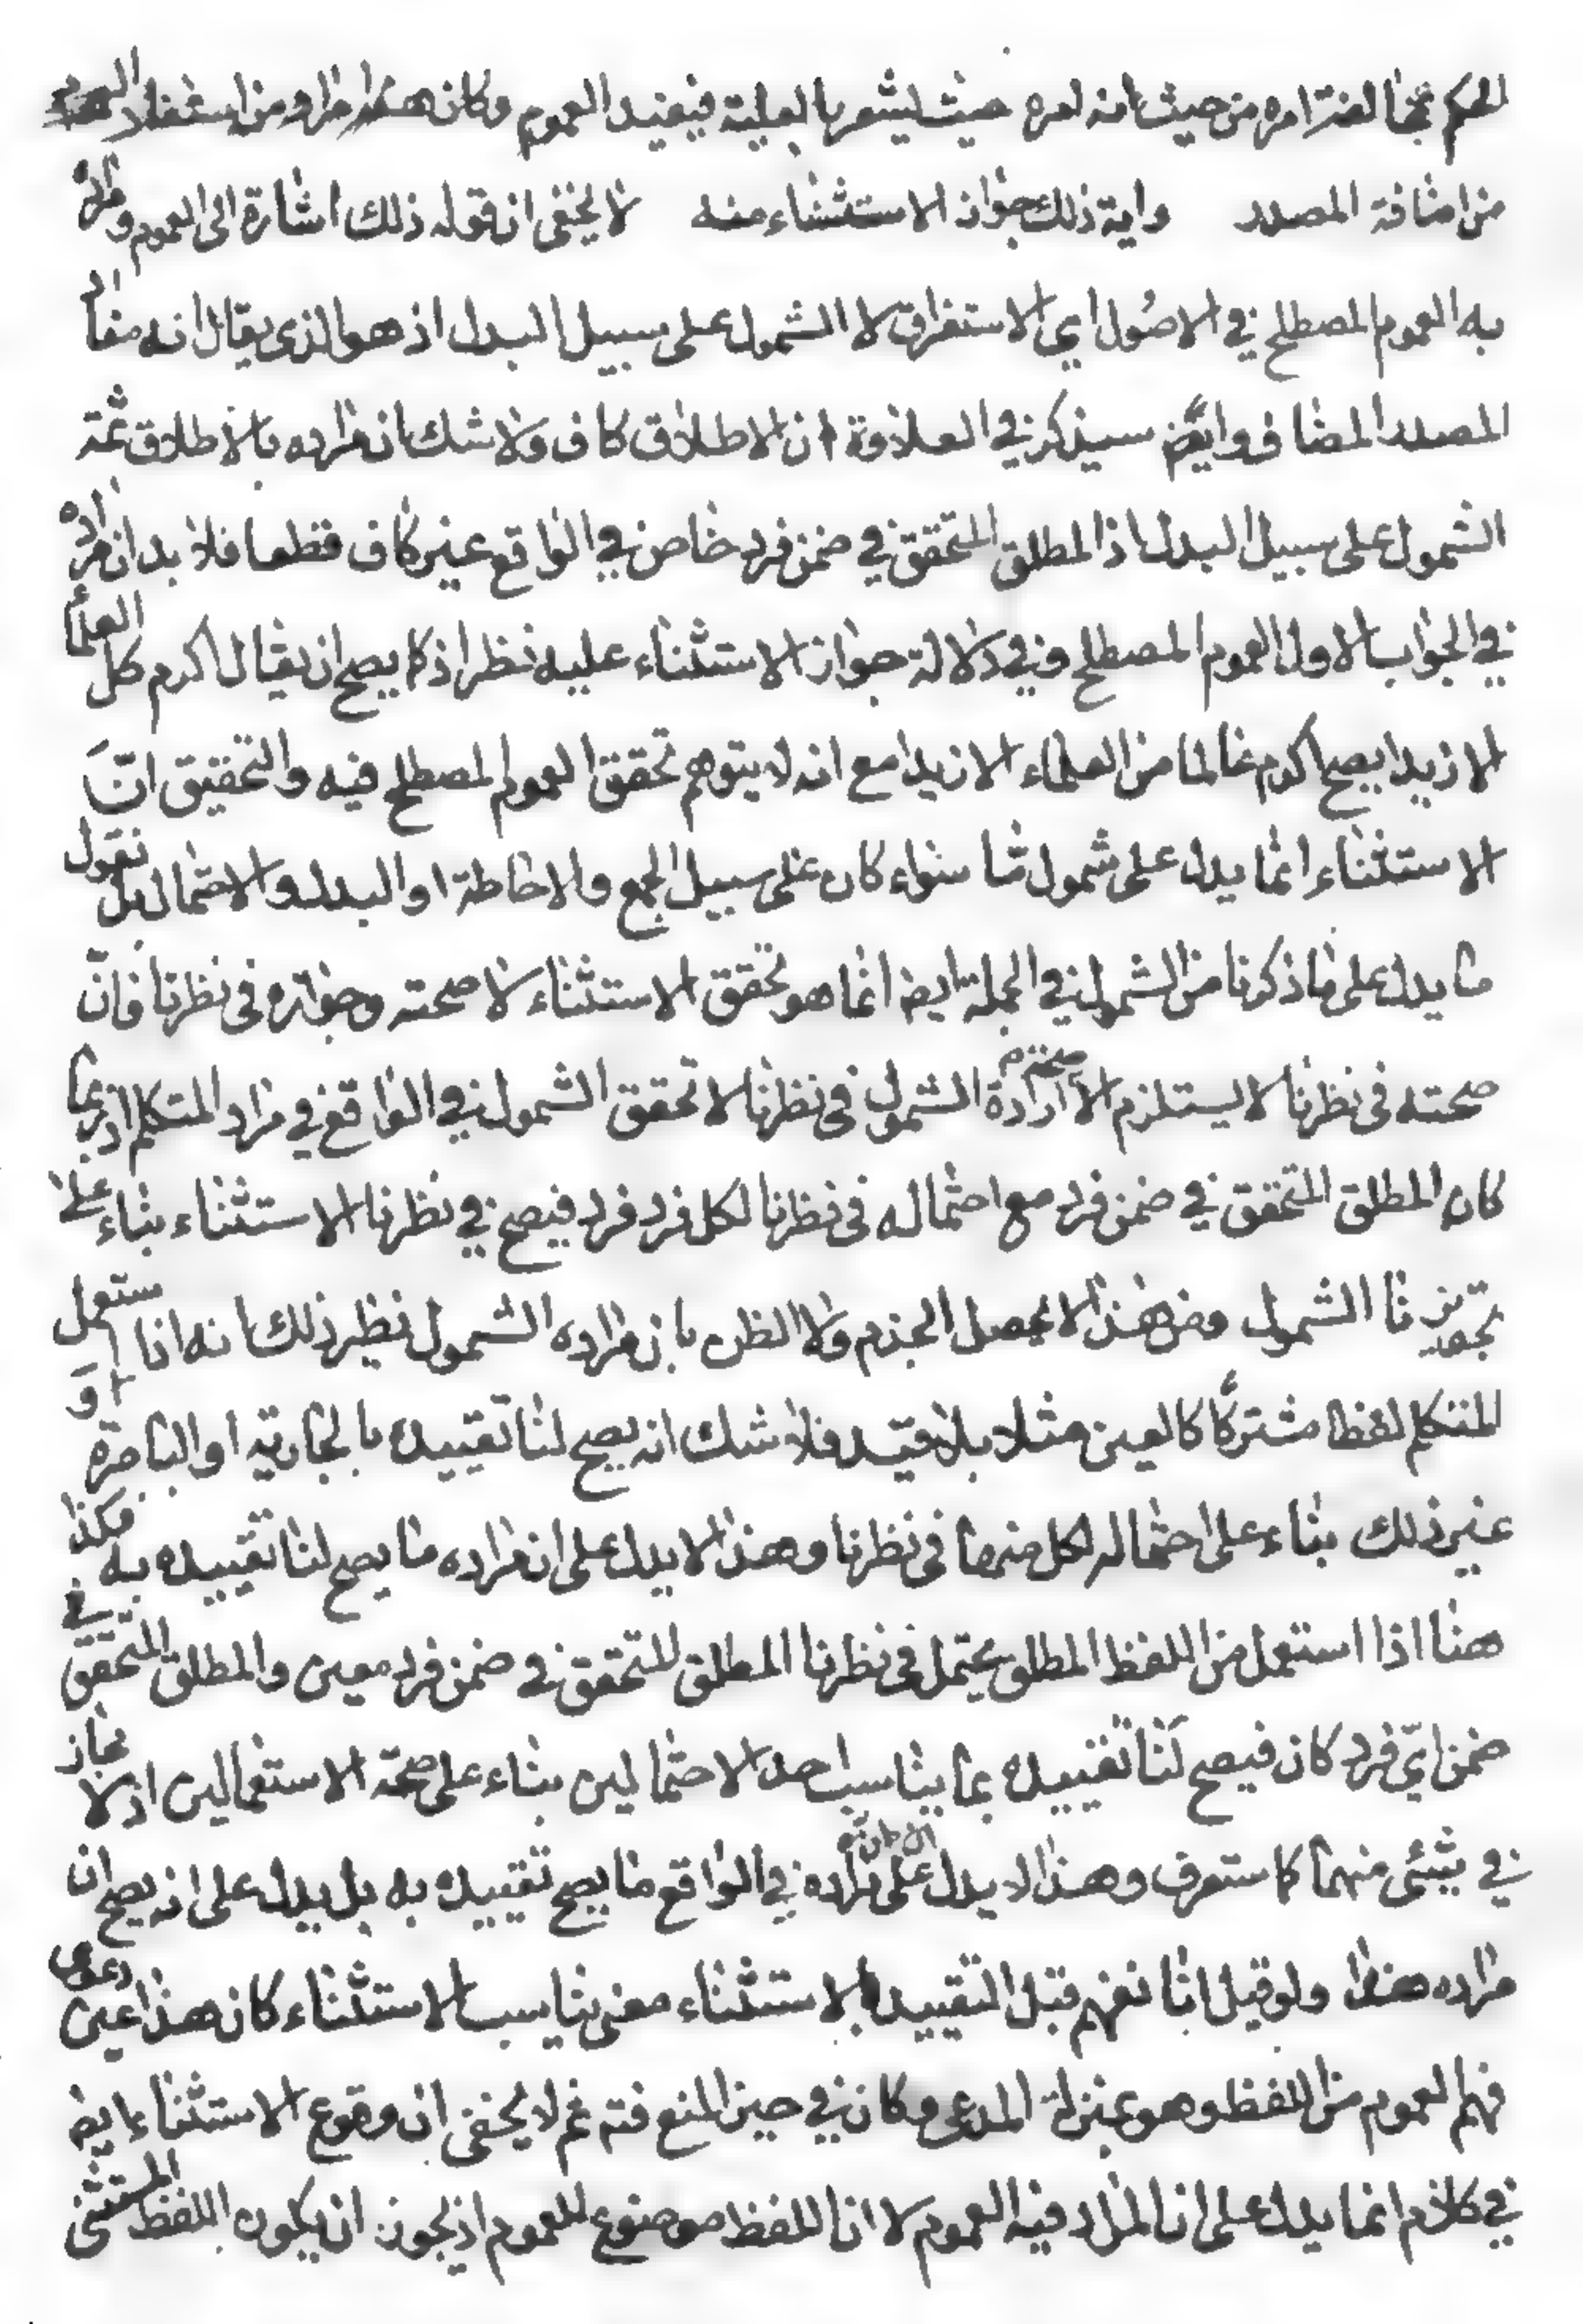 الحكم بمخالفة امره من حيث انه امره حيث ليشعر بالعلية فيفيد العموم وكان هذا مراد من استفاد العموم
من اضافة المصدر واية ذلك جواز الاستثناء منه لا يخفى ان قوله ذلك اشارة الى العموم ومراده
به العموم المصطلح في الاصول اي الاستغراق لا الشمول على سبيل البدل اذ هو الذي يقال انه مفاد
المصدر المضاف وايضا سيذكر في العلاوة ان الاطلاق كاف ولا شك ان مراده بالاطلاق ثمة
الشمول على سبيل البدل اذ المطلق المتحقق في ضمن فرد خاص في الواقع غير كاف قطعا فلا بد ان مراده
في الجواب الاول العموم المصطلح وفي دلالة جواز الاستثناء عليه نظر اذ كما يصح ان يقال اكرم كل العلماء
الا زيدا يصح اكرم عالما من العلماء الا زيدا مع انه لا يتوهم تحقق العموم المصطلح فيه والتحقيق انّ
الاستثناء انما يدل على شمول ما سواء كان على سبيل الجمع والاحاطة او البدل والاحتمال بل نقول
ما يدل على ما ذكرنا من الشمول في الجملة ايض انما هو تحقق الاستثناء لا صحته وجوازه في نظرنا فانّ
صحته في نظرنا لا يستلزم الا صحة ارادة الشمول في نظرنا لا تحقق الشمول في الواقع في مراد المتكلم اذ ربما
كان المطلق المتحقق في ضمن فرد مع احتماله في نظرنا لكل فرد فرد فيصح في نظرنا الاستثناء بناء على
تجويزنا الشمول ومن هذا لا يحصل الجزم ولا الظن بان مراده الشمول نظير ذلك انه اذا استعمل
المتكلم لفظا مشتركا كالعين مثلا بلا قيد فلا شك انه يصح لنا تقييده بالجارية او الباصرة او
غير ذلك بناء على احتماله لكل منهما في نظرنا وهذا لا يدل على ان مراده ما يصح لنا تقييده به فكذا
هنا اذا استعمل من اللفظ المطلق يحتمل في نظرنا المطلق المتحقق في ضمن فرد معين والمطلق المتحقق في
ضمن ايّ فرد كان فيصح لنا تقييده بما يناسب احد الاحتمالين بناء على صحة الاستعمالين اذ لا مجاز
في شيئ منهما كما ستعرف وهذا لا يدل على ان مراده في الواقع ما يصح تقييده به بل يدل على انه يصح ان
مراده هذا ولو قيل انا نفهم قبل التقييد بالاستثناء معنى يناسب الاستثناء كان هذا عين دعوى
فهم العموم من اللفظ وهو بمنزلة المدعى وكان في حيز المنع فتم ثم لا يخفى ان وقوع الاستثناء ايض
في كلام انما يدل على ان المراد فيه العموم لا ان اللفظ موضوع للعموم اذ يجوز ان يكون اللفظ المستثنى